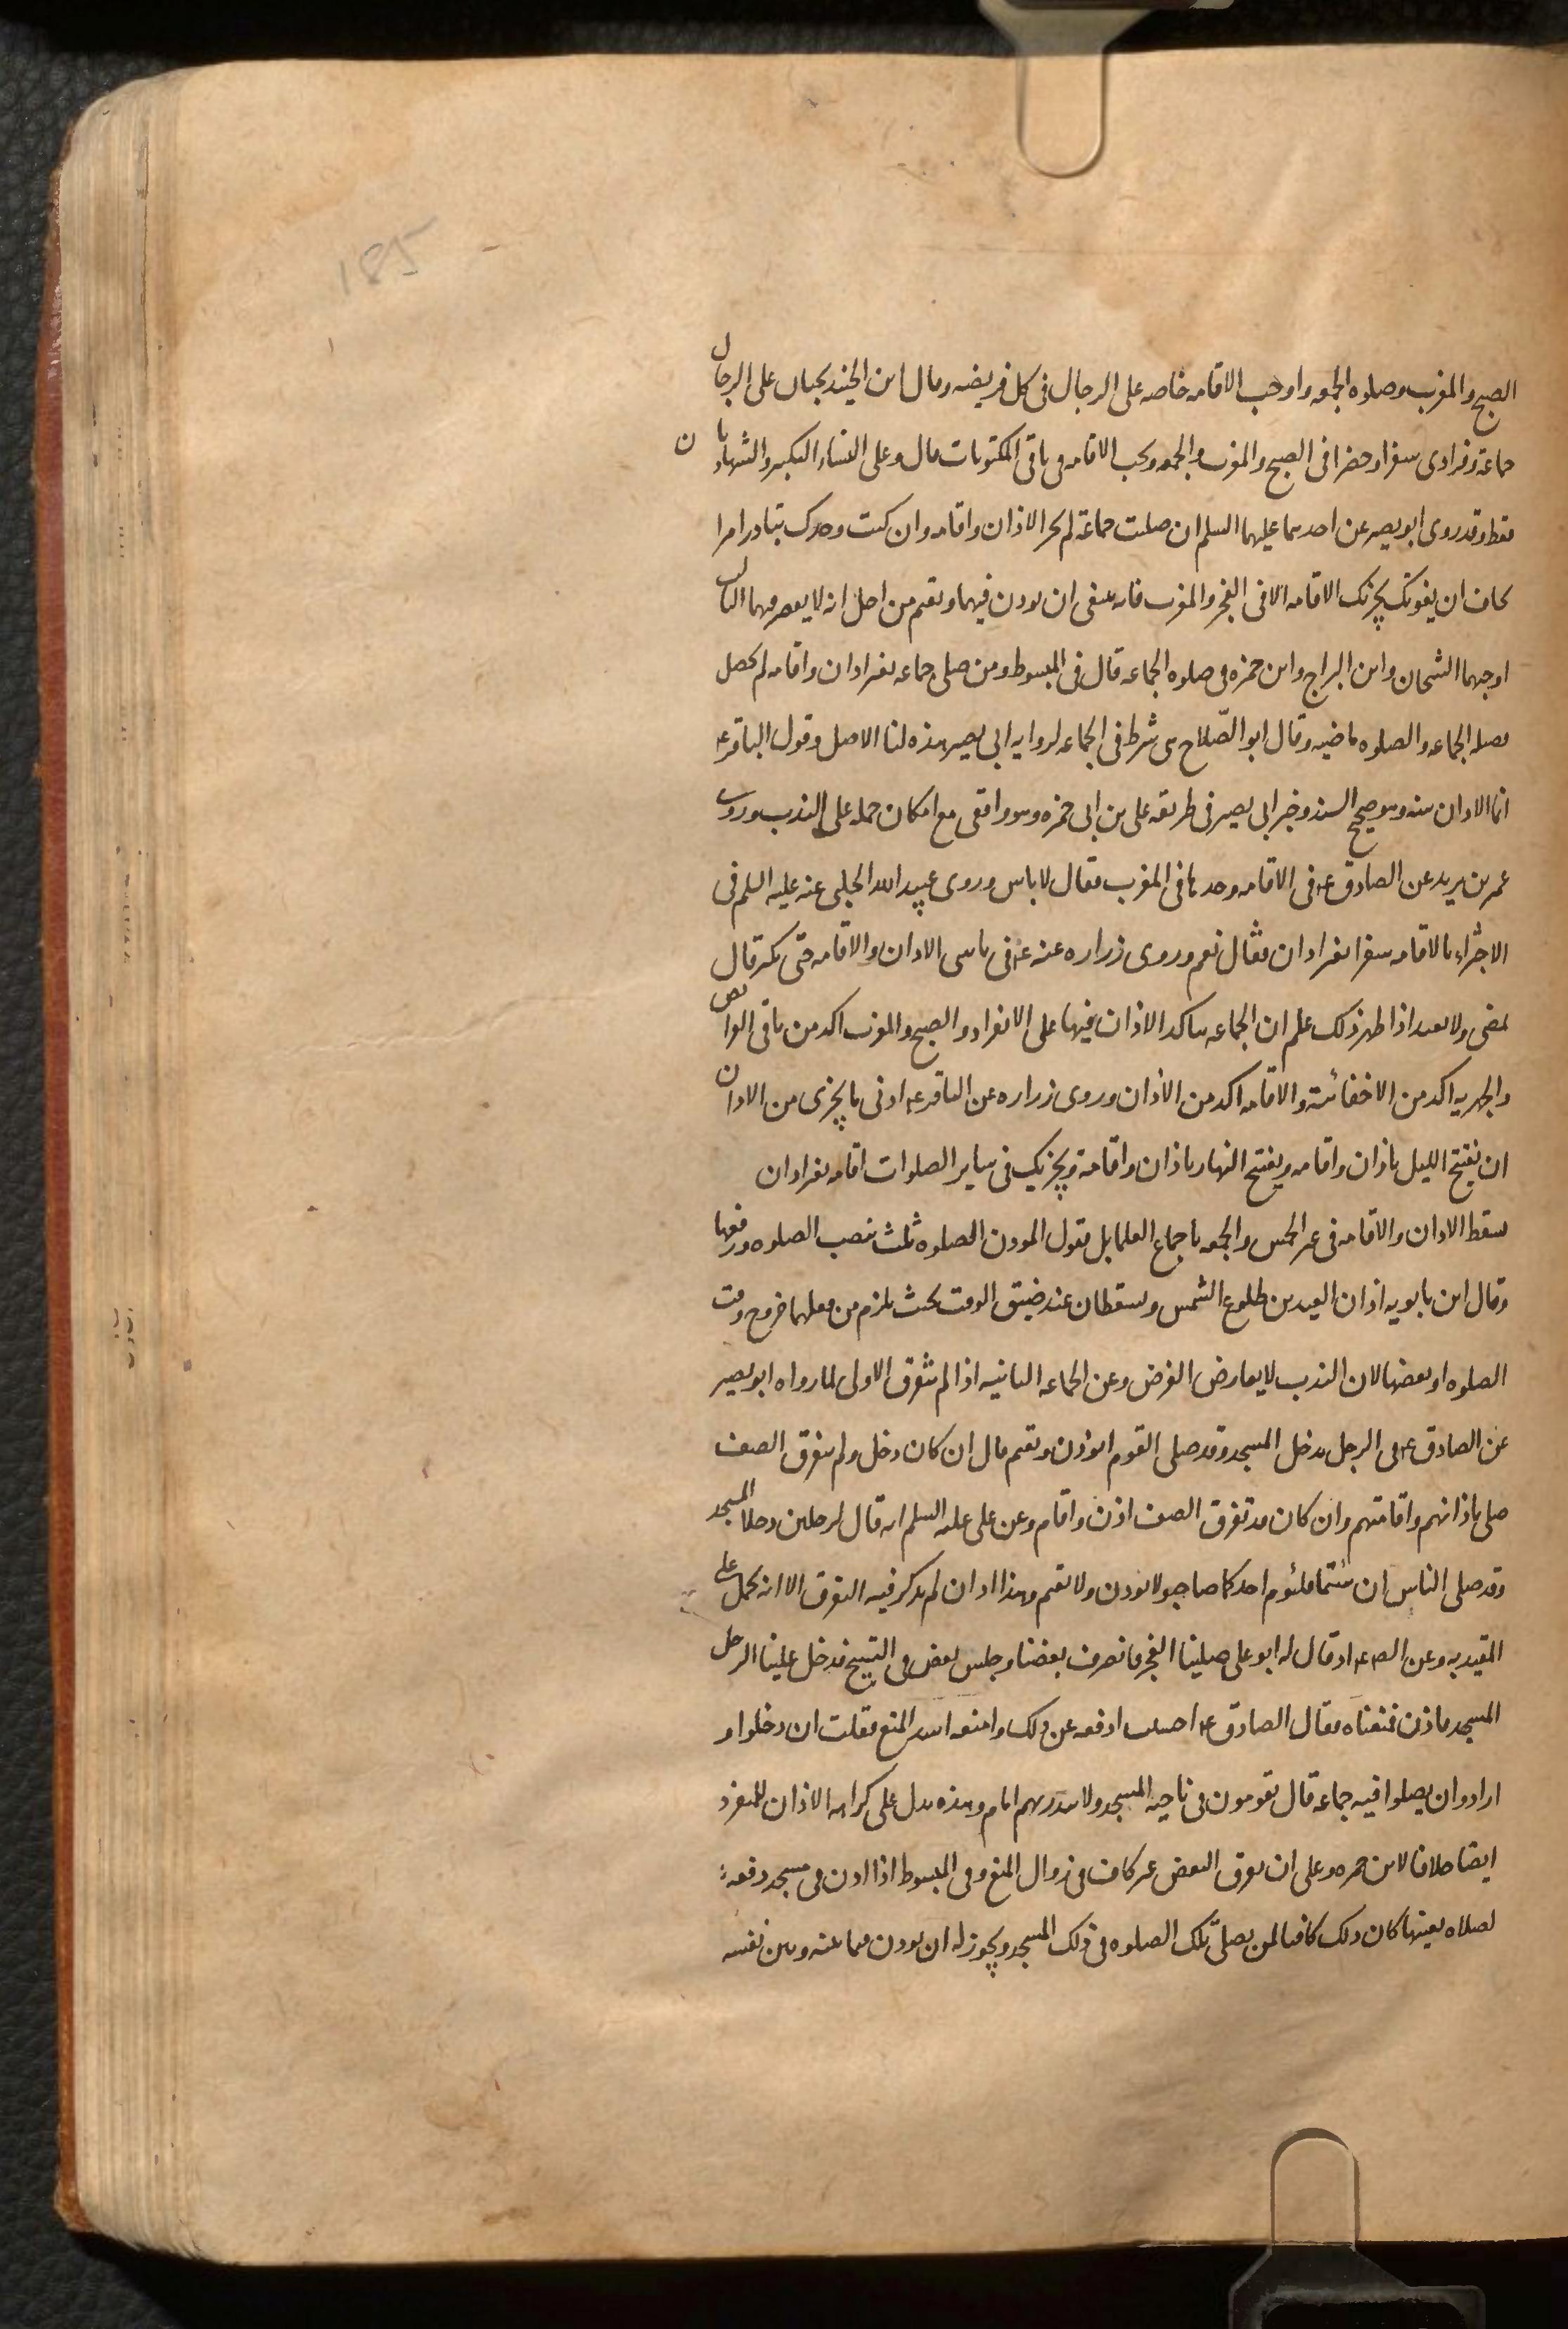 185
الصبح والمغرب وصلوه الجمعه واوجب الاقامه خاصه على الرجال فى كل فريضه وقال ابن الجنيد يجبان على الرجال
جماعة وفرادى سفرا وحضرا فى الصبح والمغرب والجمعه ويجب الاقامه فى باقى المكتوبات قال وعلى النساء التكبير والشهادتان
فقط وقد روى ابو بصير عن احدهما عليهما السلم ان صليت جماعة لم يجز الا اذان واقامه وان كنت وحدك تبادر امرا
تخاف ان يفوتك يجزئك الاقامه الا فى الفجر والمغرب فانه ينبغى ان تودن فيهما وتقيم من اجل انه لا يقصر فيهما الثالث
اوجبهما الشيخان وابن البراج وابن حمزه فى صلوه الجماعه قال فى المبسوط ومن صلى جماعه بغير اذان واقامه لم تحصل
فضله الجماعه والصلوه ماضيه وقال ابو الصّلاح هى شرط فى الجماعه لروايه ابى بصير هذه لنا الاصل وقول الباقر ع
انما الاذان سنه وهو صحيح السند وخبر ابى بصير فى طريقه على بن ابى حمزه وهو واقفى مع امكان حمله على الندب وروى
عمر بن يزيد عن الصادق ع فى الاقامه وحدها فى المغرب فقال لا باس وروى عبيد الله الحلبى عنه عليه السلم فى
الاجتزاء بالاقامه سفرا بغير اذان فقال نعم وروى زراره عنه ع فى ناسى الاذان والاقامه حتى يكبر قال
يمضى ولا يعيد اذا ظهر ذلك علم ان الجماعه يتاكد الاذان فيها على الانفراد والصبح والمغرب اكد من باقى الفرايض
والجهريه اكد من الاخفائية والاقامه اكد من الاذان وروى زراره عن الباقر ع ادنى ما يجزى من الاذان
ان يفتتح الليل باذان واقامه ويفتتح النهار باذان واقامة ويجزيك فى ساير الصلوات اقامه بغير اذان
يسقط الاذان والاقامه فى غير الخمس والجمعه باجماع العلما بل يقول المودن الصلوه ثلث بنصب الصلوه ورفعها
وقال ابن بابويه اذان العيدين طلوع الشمس ويسقطان عند ضيق الوقت بحيث يلزم من فعلهما خروج وقت
الصلوه او بعضها لان الندب لا يعارض الفرض وعن الجماعه الثانيه اذا لم تتفرق الاولى لما رواه ابو بصير
عن الصادق ع فى الرجل يدخل المسجد وقد صلى القوم ايؤذن ويقيم قال ان كان دخل ولم يتفرق الصف
صلى باذانهم واقامتهم وان كان قد تفرق الصف اذن واقام وعن على عليه السلم انه قال لرجلين دخلا المسجد
وقد صلى الناس ان شئتما فليؤم احدكما صاحبه ولا يودن ولا يقيم وهذا ان لم يذكر فيه التفرق الا انه يحمل على
المقيد به وعن الصادق ع اذ قال له ابو على صلينا الفجر فانصرف بعضنا وجلس بعض فى التسبيح فدخل علينا الرجل
المسجد فاذن فمنعناه فقال الصادق ع احسنت ادفعه عن ذلك وامنعه اشد المنع فقلت ان دخلوا و
ارادوا ان يصلوا فيه جماعه قال يقومون فى ناحيه المسجد ولا يبدر بهم امام وهذه يدل على كراهه الاذان للمنفرد
ايضا خلافا لابن حمزه وعلى ان تفرق البعض غير كاف فى زوال المنع وفى المبسوط اذا اذن فى مسجد دفعه
لصلاه بعينها كان ذلك كافيا لمن يصلى تلك الصلوه فى ذلك المسجد ويجوز له ان يودن فيما بينه وبين نفسه